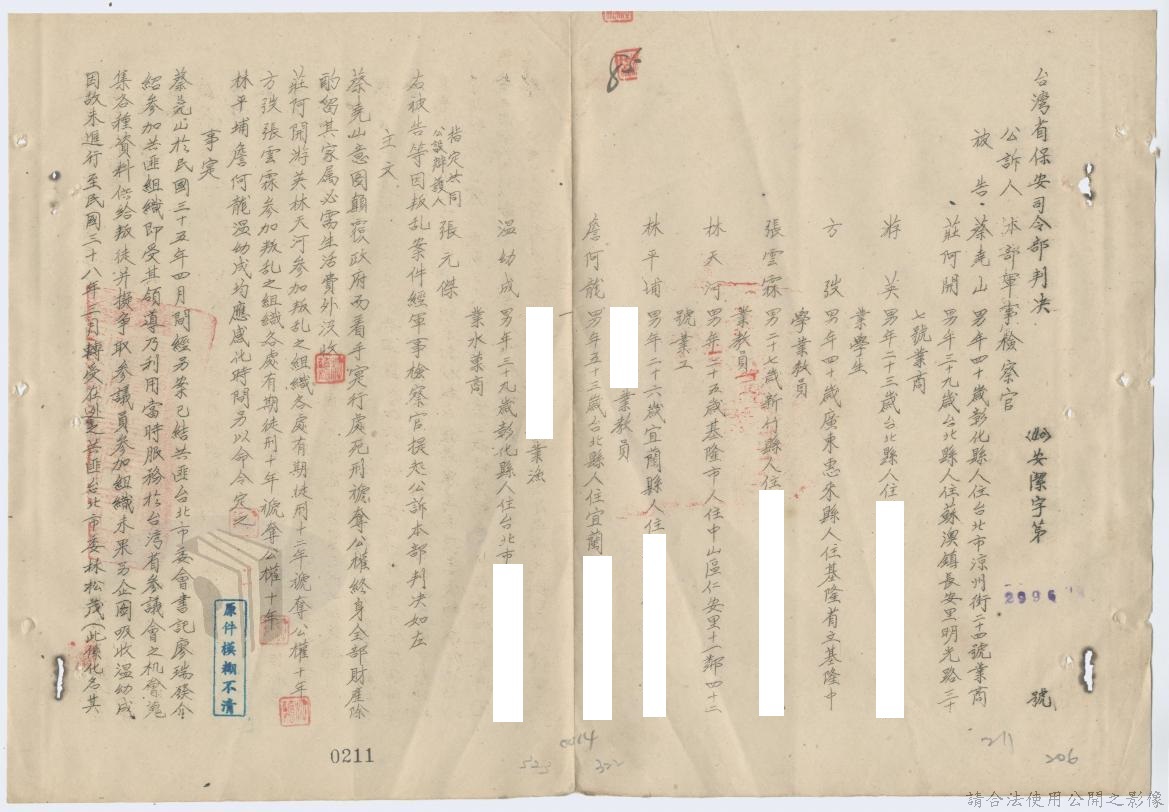 台灣省保安司令部判决
(40)安潔字第2996號
公訴人 本部軍事檢察官
被告 蔡堯山 男年四十歲彰化縣人住台北市涼州街二十四號業商
莊阿開 男年三十九歲台北縣人住蘇澳鎮長安里明光路三十
七號業商
游英 男年二十三歲台北縣人住
業學生
方弢 男年四十歲廣東惠來縣人住基隆省立基隆中
學業教員
張雲霖 男二十七歲新竹縣人住
業教員
林天河 男年二十五歲基隆市人住中山區仁安里十一鄰四十三
號業工
林平埔 男年二十六歲宜蘭縣人住
業教員
詹阿龍 男年五十三歲台北縣人住宜蘭
業漁
溫幼成 男年三十九歲彰化縣人住台北市
業水菓商
指定共同
公設辯護人 張元傑
右被告等因叛乱案件經軍事檢察官提起公訴本部判决如左
主文
蔡堯山意圖顛覆政府而着手实行處死刑褫奪公權終身全部財產除
酌留其家属必需生活費外沒收
莊阿開游英林天河參加叛乱之組織各處有期徒刑十二年褫奪公權十年
方弢張雲霖參加叛乱之組織各處有期徒刑十年褫奪公權十年
林平埔詹阿龍溫幼成均應感化時間另以命令定之
事实
蔡堯山於民國三十五年四月間經另案已結共匪台北市委會書記廖瑞發介
紹參加共匪組織即受其領導乃利用當時服務於台湾省參議會之机會蒐
集各種資料供給叛徒并擬爭取參議員參加組織未果另企圖吸收溫幼成
因故未進行至民國三十八年二月轉受在逃之共匪台北市委林松茂(此係化名其
原件模糊不清
0211
85
0014
523
322
211
206
請合法使用公開之影像